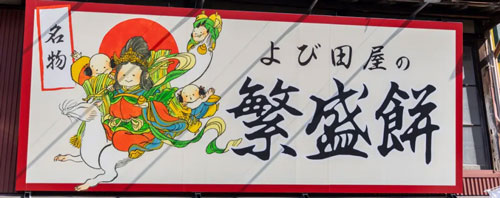 名物
よび田屋の
繁盛餅